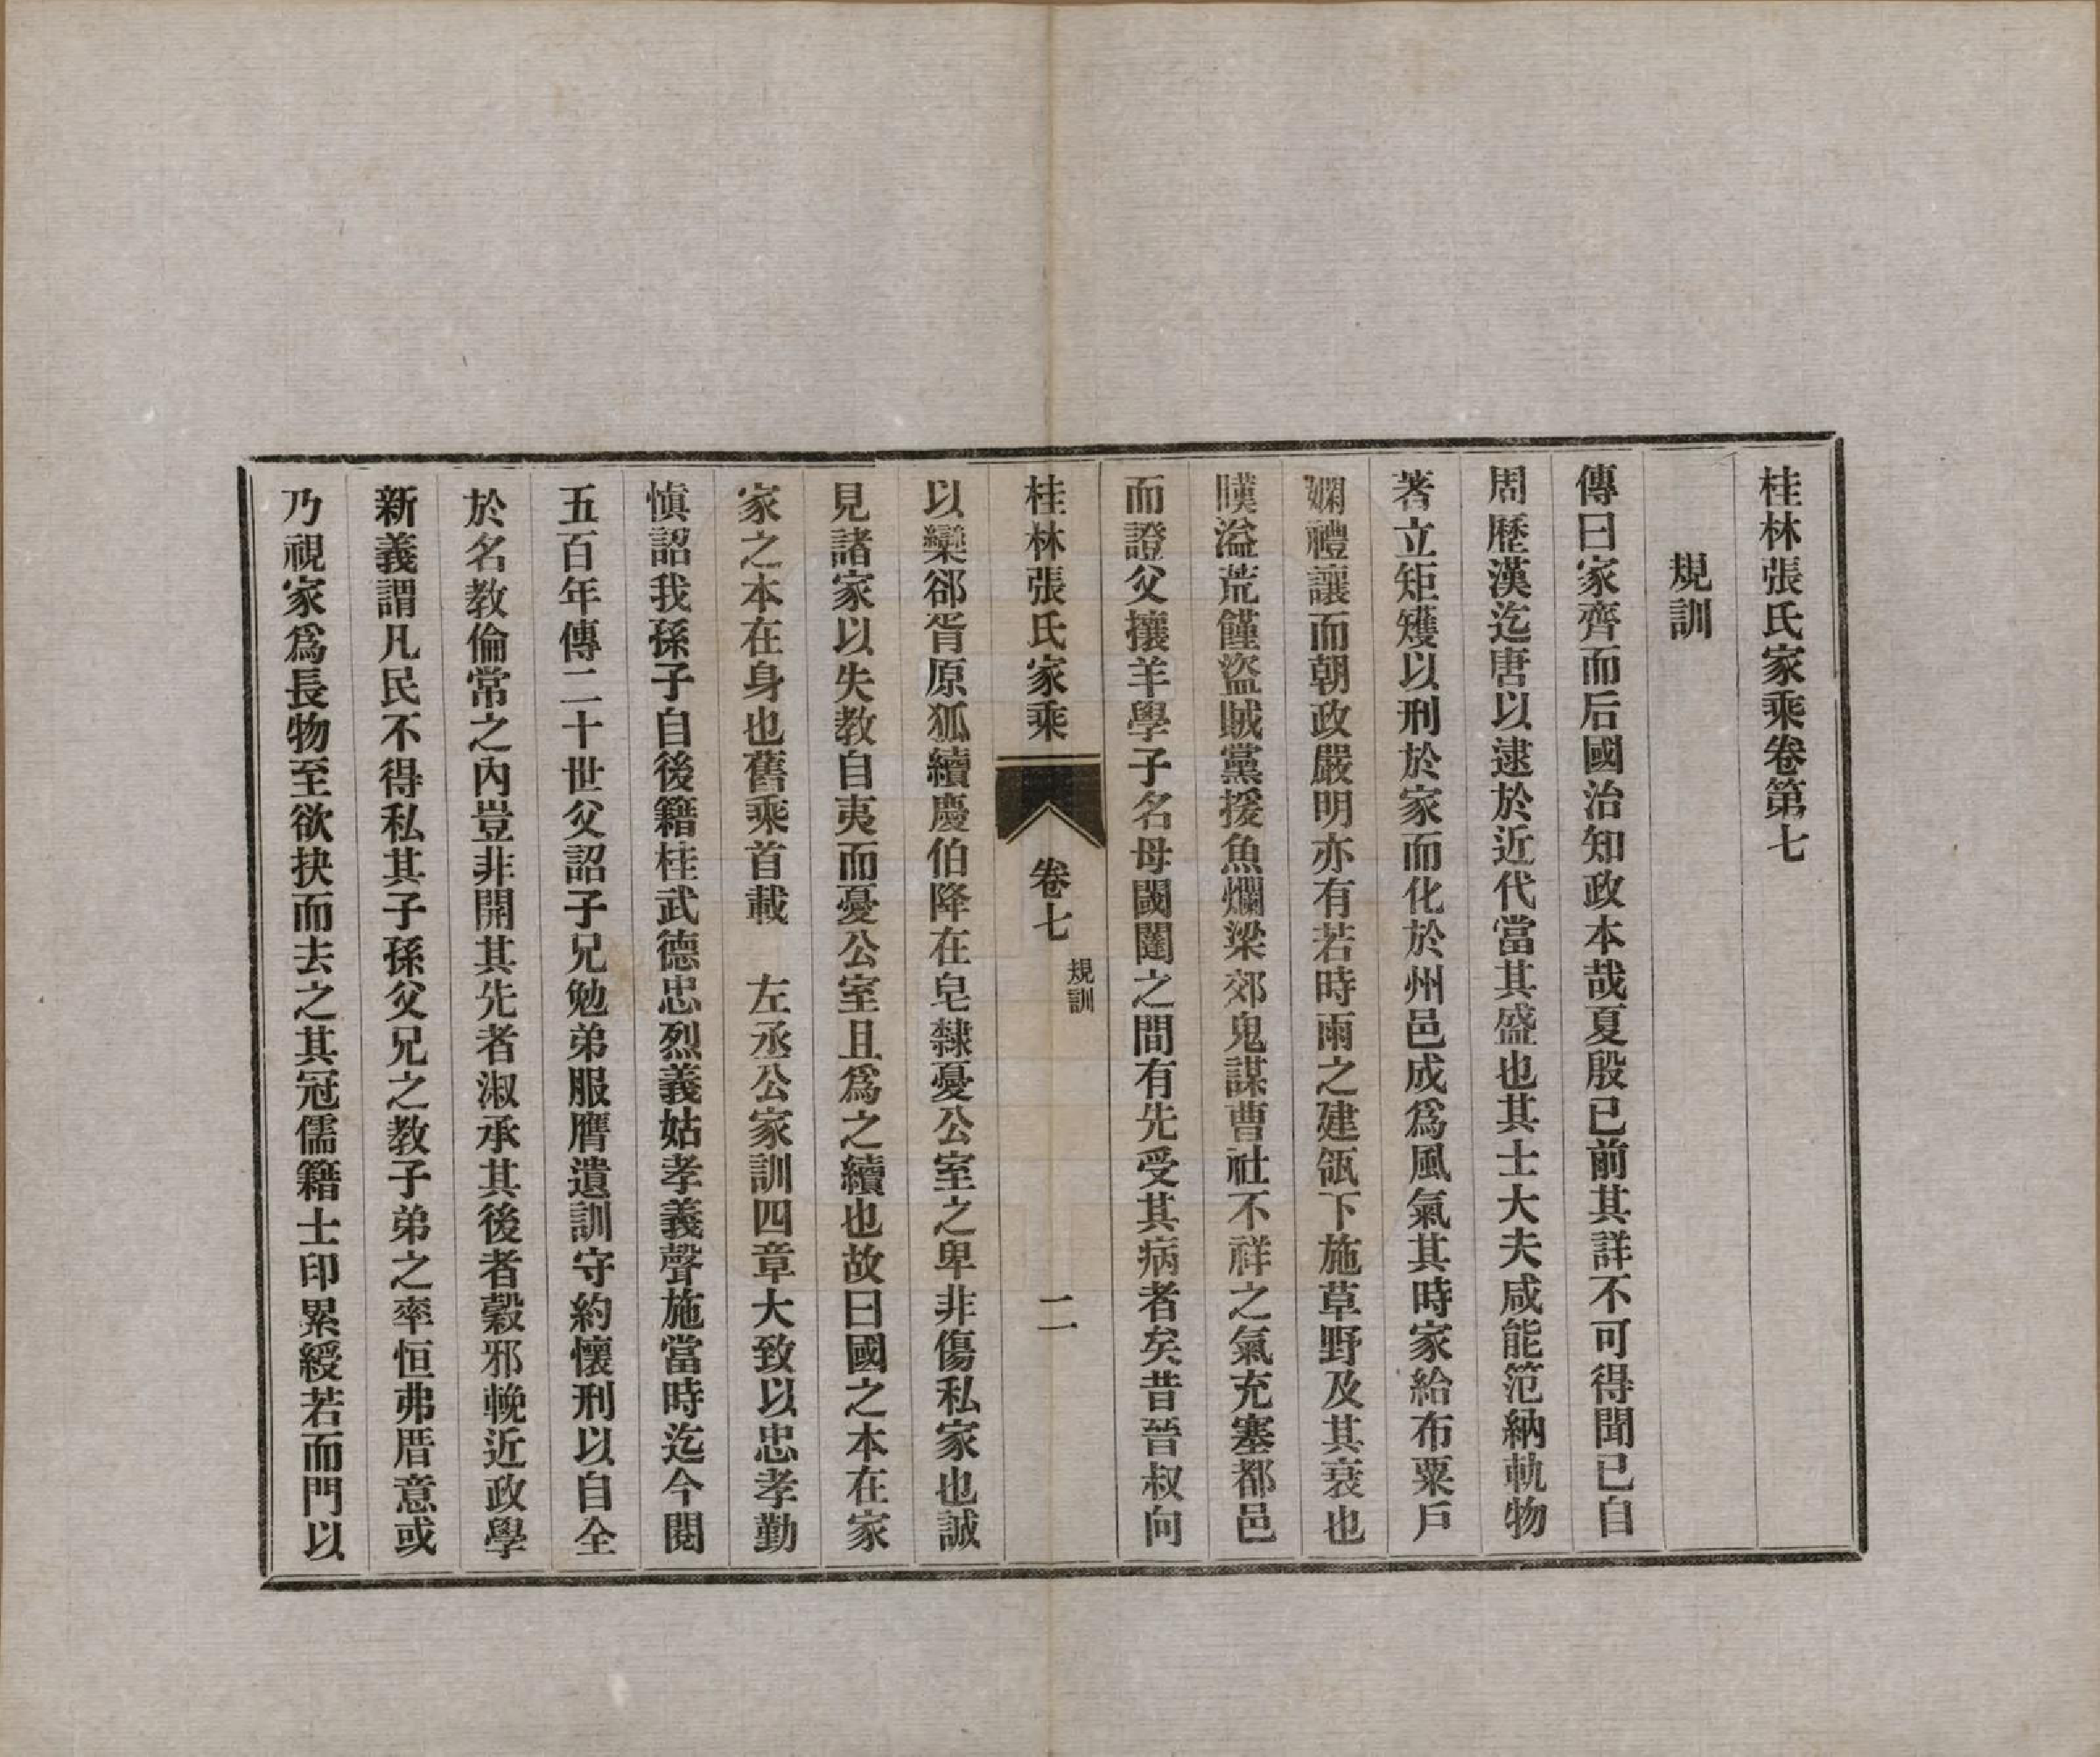 桂林張氏家乘卷第七
規訓
傳曰家齊而后國治知政本哉夏殷已前其詳不可得聞已自
周歷漢迄唐以逮於近代當其盛也其士大夫咸能笵納軌物
著立矩矱以刑於家而化於州邑成爲風氣其時家給布粟戶
嫻禮讓而朝政嚴明亦有若時雨之建瓴下施草野及其衰也
暵溢荒饉盜賊黨援魚爛梁郊鬼謀曹社不祥之氣充塞都邑
而證父攘羊學子名母閫闥之間有先受其病者矣昔晉叔向
桂林張氏家乘 卷七 規訓 二
以欒郤胥原狐續慶伯降在皂隸憂公室之卑非傷私家也誠
見諸家以失教自夷而憂公室且爲之續也故曰國之本在家
家之本在身也舊乘首載 左丞公家訓四章大致以忠孝勤
愼詔我孫子自後籍桂武德忠烈義姑孝義聲施當時迄今閱
五百年傳二十世父詔子兄勉弟服膺遺訓守約懷刑以自全
於名教倫常之內豈非開其先者淑承其後者穀邪輓近政學
新義謂凡民不得私其子孫父兄之教子弟之率恒弗厝意或
乃視家爲長物至欲抉而去之其冠儒籍士印累綬若而門以